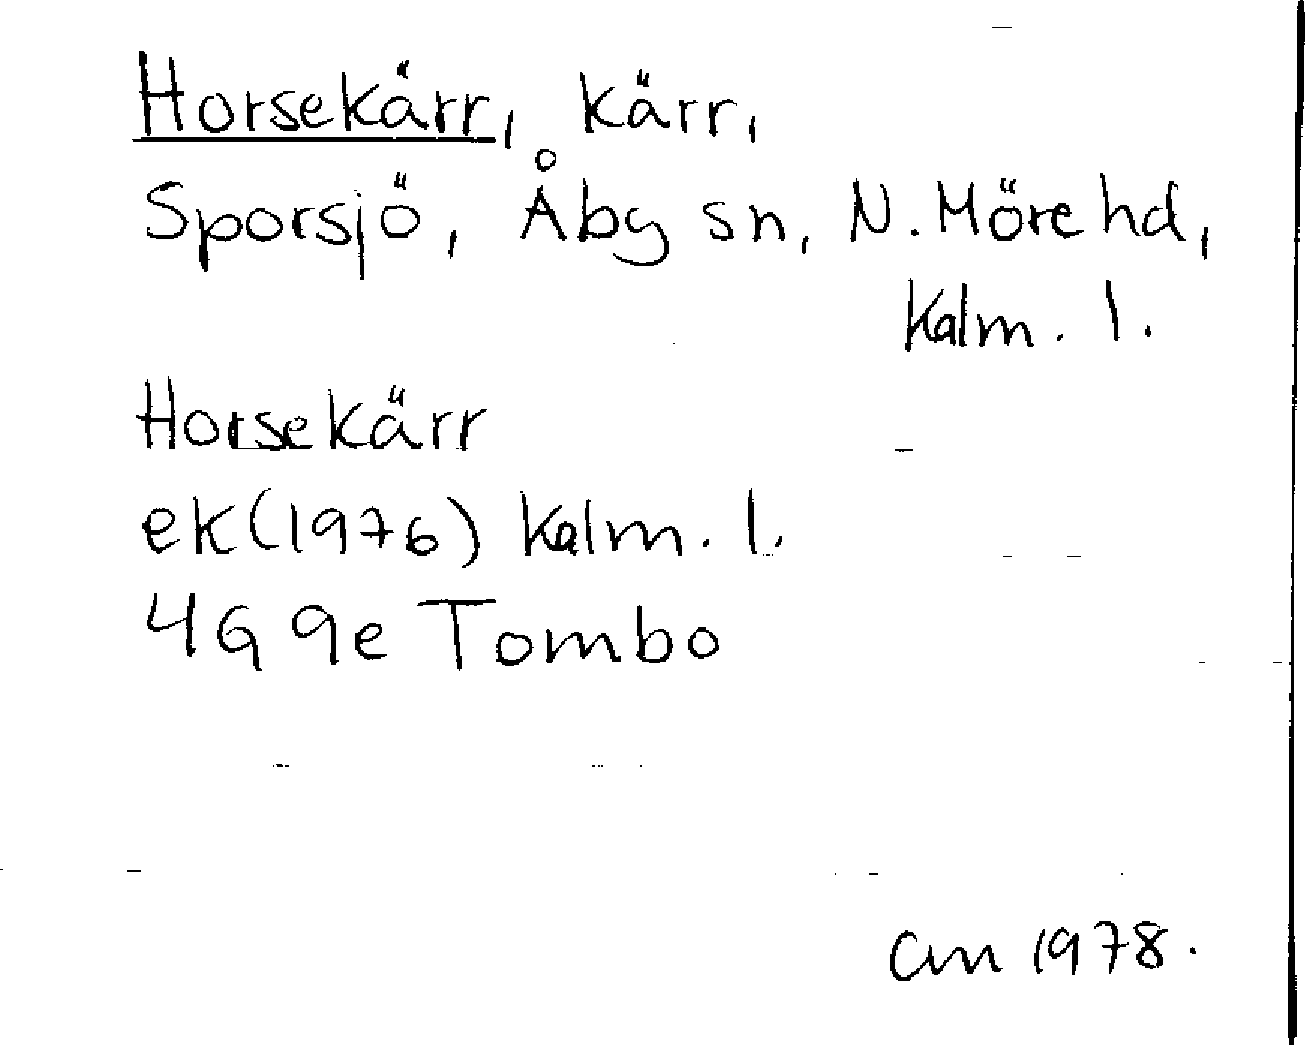 Horsekärr, kärr,
Sporsjö, Åby sn, N. Möre hd,
Kalm. l.
Horsekärr
ek(1976) Kalm. l.
4G 9e Tombo
CM 1978.